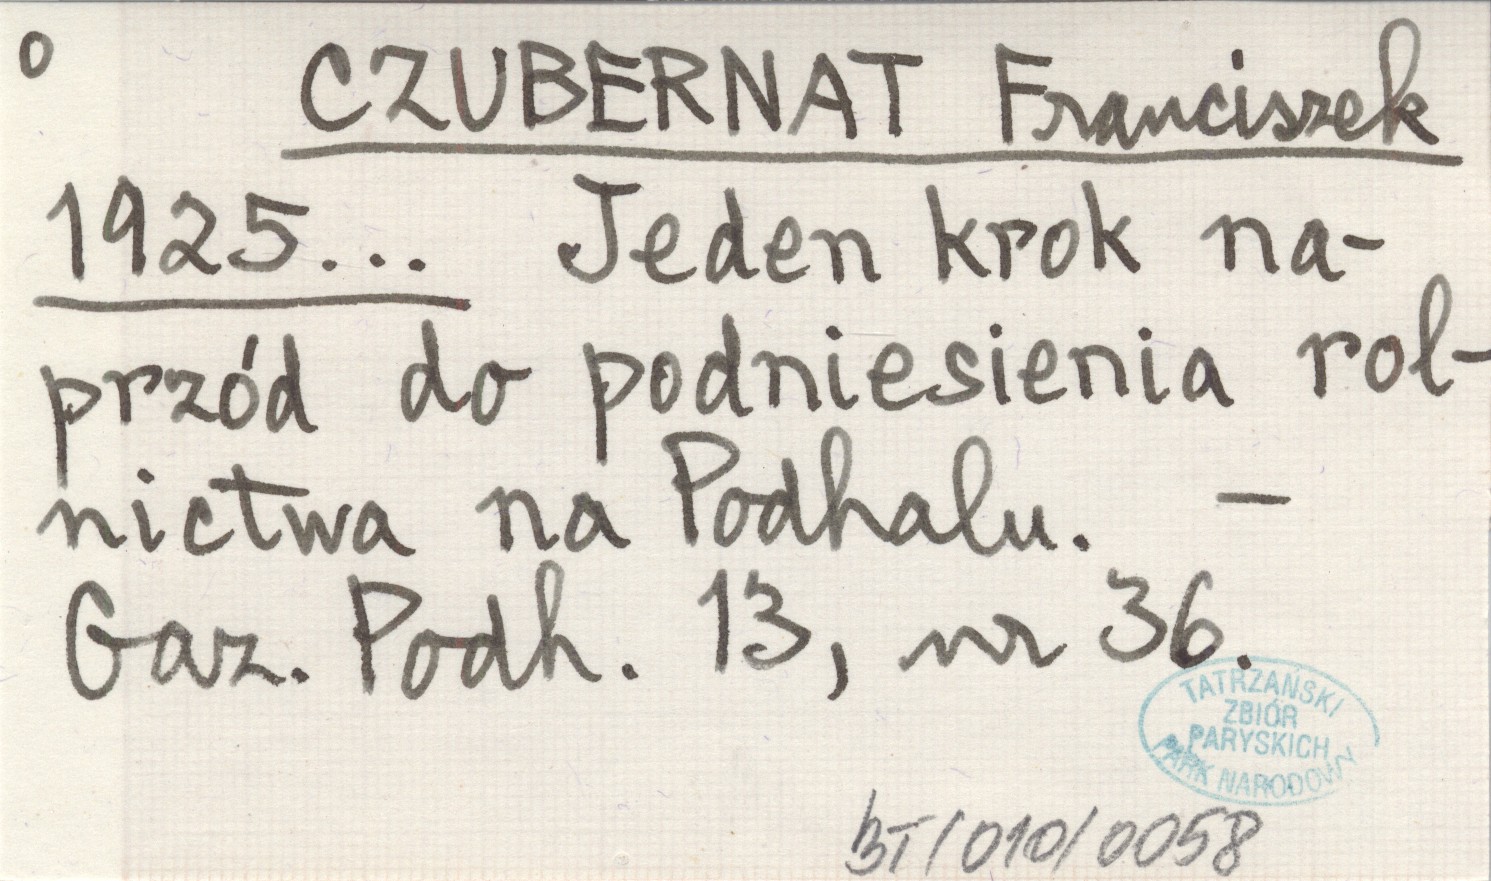 o CZUBERNAT Franciszek
1925... Jeden krok na-
przód do podniesienia rol-
nictwa na Podhalu. —
Gaz. Podh. 13, nr 36.
TATRZAŃSKI
ZBIÓR
PARYSKICH
PARK NARODOWY
BT/010/0058